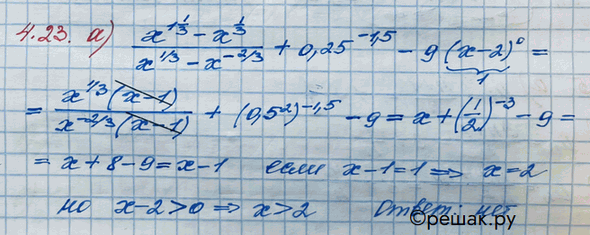 4.23. а) (x^{1 1/3} - x^{1/3}) / (x^{1/3} - x^{-2/3}) + 0,25^{-1,5} - 9 (x-2)^0 =
1
= (x^{1/3} (x-1)) / (x^{-2/3} (x-1)) + (0,5^2)^{-1,5} - 9 = x + (1/2)^{-3} - 9 =
= x + 8 - 9 = x - 1 если x-1=1 => x=2
но x-2>0 => x>2 ответ: нет
©решак.ру